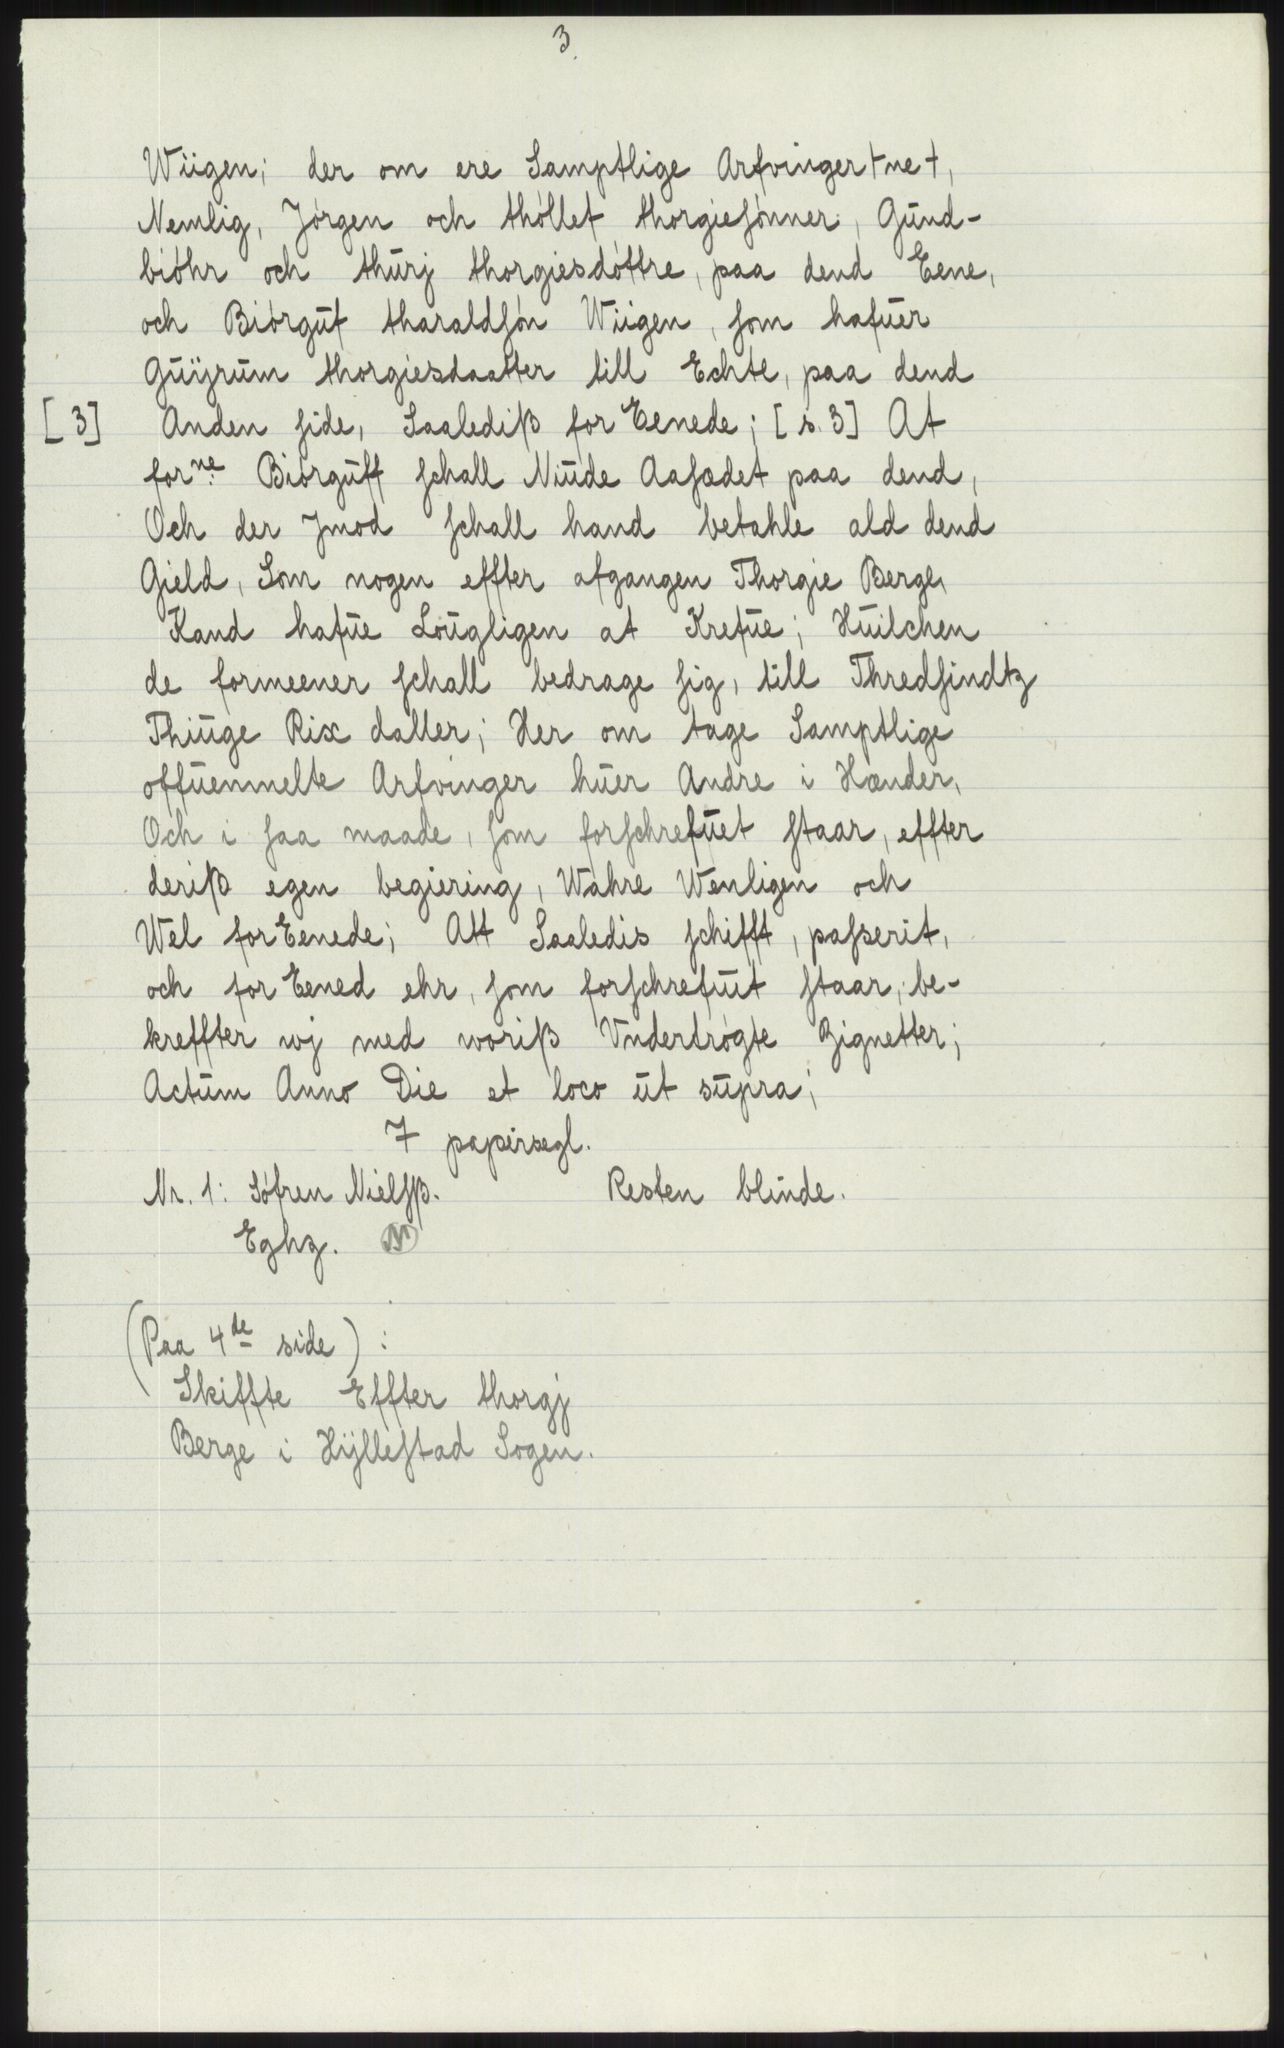 3.
Wiigen; der om ere Samptlige Arfvinger+ne+,
Nemlig, Jørgen och thøllef thorgiesønner, Gŭnd-
biøhr och thŭrj thorgiesdøttre, paa dend Eene,
och Biørgŭf tharaldsøn Wiigen, som hafŭer
Gŭÿrŭm thorgiesdaatter till Echte, paa dend
[3] Anden side, Saalediß for Eenede; [s. 3] At
forne Biørgŭff schall Niŭde Aasædet paa dend,
Och der Jmod schall hand betahle ald dend
Gield, Som nogen effter afgangen Thorgie Berge,
Kand hafŭe Loŭgligen at Krefŭe; Hŭilchen
de formeener schall bedrage sig, till Thredsindtz
Thiŭge Rix daller; Her om tage Samptlige
offŭenmelte Arfvinger hŭer Andre i Hænder,
Och i saa maade, som forschrefŭet staar, effter
deriß egen begiering, Wahre Wenligen och
Wel forEenede; Att Saaledis schifft, passerit,
och for Eened ehr, som forschrefŭit staar, be-
kreffter wj med woriß Vndertrøgte Zignetter;
Actŭm Anno Die et loco ŭt sŭpra;
7 papirsegl.
Nr. 1: Søfren Nielsß. Resten blinde.
Eghz.
(Paa 4de side):
Skiffte Effter thorgj
Berge i Hÿllestad Sogen.